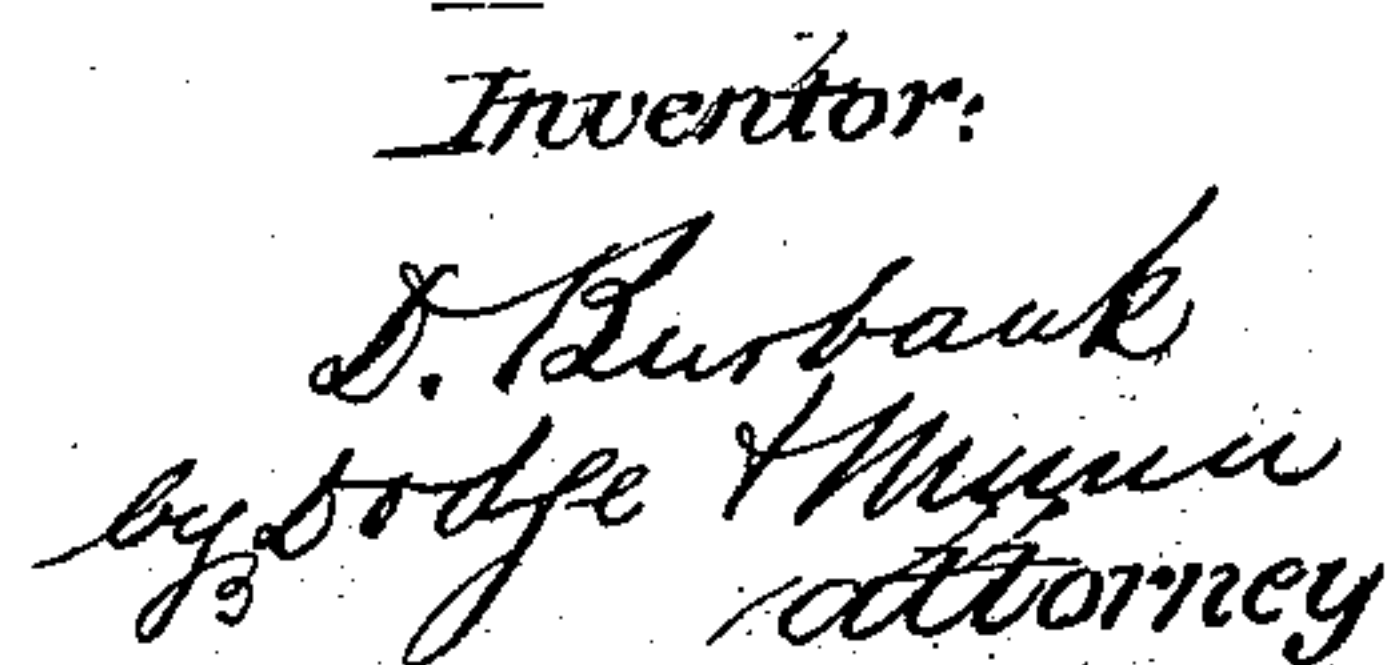 Inventor:
D. Burbank
by Dodge & Munn
attorney